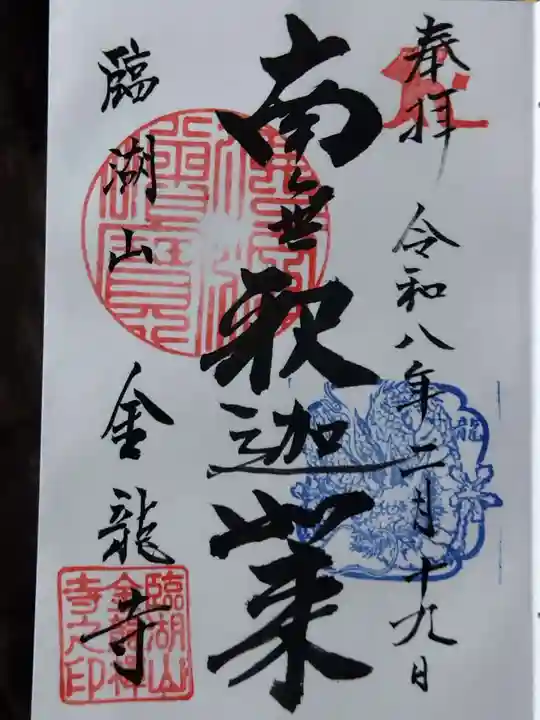 奉拝 令和八年二月十九日
南無釈迦
臨湖山 金龍寺
龍
臨湖山
金龍禅
寺之印